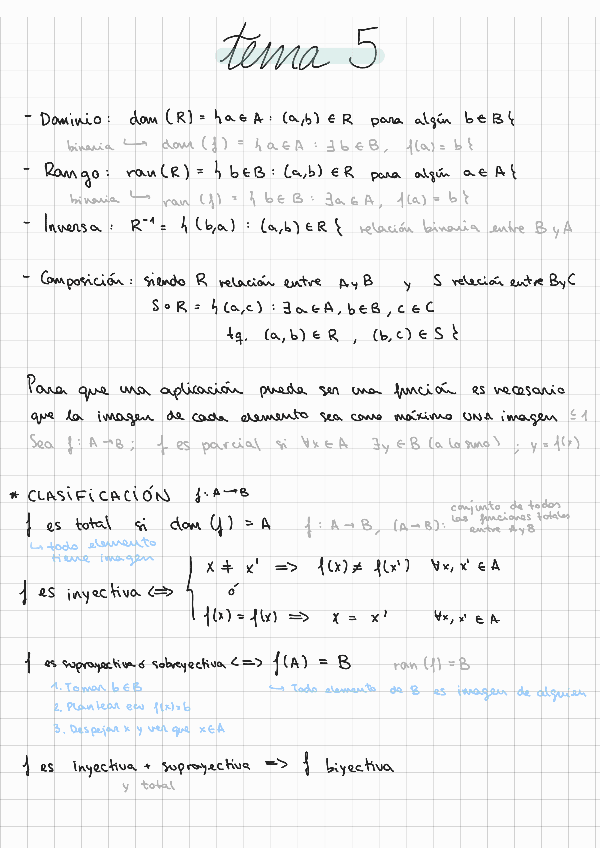 tema 5
- Dominio: dom (R) = { a ∈ A : (a,b) ∈ R para algún b ∈ B }
binaria ↳ dom (f) = { a ∈ A : ∃ b ∈ B, f(a) = b }
- Rango: ran (R) = { b ∈ B : (a,b) ∈ R para algún a ∈ A }
binaria ↳ ran (f) = { b ∈ B : ∃ a ∈ A, f(a) = b }
- Inversa: R⁻¹ = { (b,a) : (a,b) ∈ R } relación binaria entre B y A
- Composición: siendo R relación entre A y B y S relación entre B y C
S ∘ R = { (a,c) : ∃ a ∈ A, b ∈ B, c ∈ C
tq. (a,b) ∈ R , (b,c) ∈ S }
Para que una aplicación pueda ser una función es necesario
que la imagen de cada elemento sea como máximo UNA imagen ≤ 1
Sea f : A → B ; f es parcial si ∀x ∈ A ∃ y ∈ B (a lo sumo) ; y = f(x)
* CLASIFICACIÓN f : A → B
f es total si dom (f) = A f : A → B, (A → B): conjunto de todos
las funciones totales
entre A y B
↳ todo elemento
tiene imagen
x ≠ x' => f(x) ≠ f(x') ∀x, x' ∈ A
f es inyectiva <=> { ó
f(x) = f(x) => x = x' ∀x, x' ∈ A
f es suprayectiva ó sobreyectiva <=> f(A) = B ran (f) = B
1. Tomar b ∈ B ↳ Todo elemento de B es imagen de alguien
2. Plantear ecu f(x) = b
3. Despejar x y ver que x ∈ A
f es inyectiva + suprayectiva => f biyectiva
y total